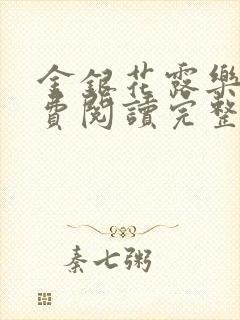 金銀花露樂
費閱讀完整
秦七粥